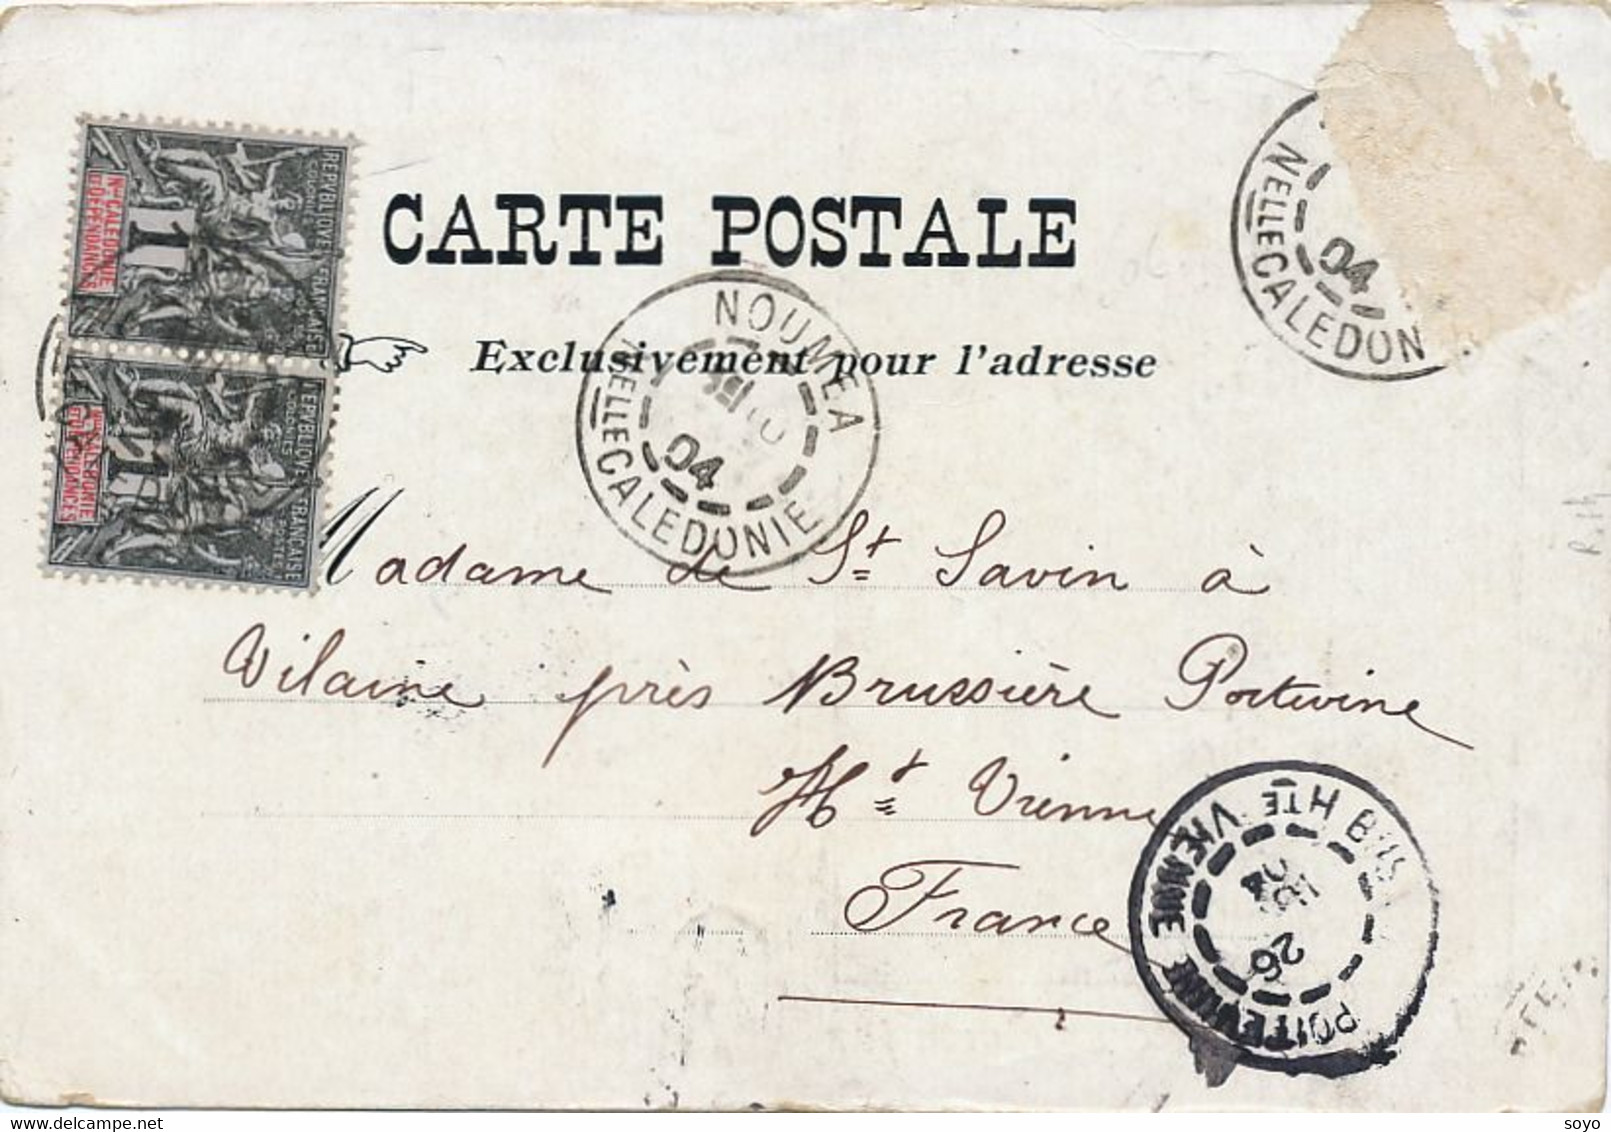 CARTE POSTALE
Exclusivement pour l'adresse
REPVBLIQVE FRANÇAISE
COLONIES
POSTES
1
Nlle CALEDONIE
ET DEPENDANCES
REPVBLIQVE FRANÇAISE
COLONIES
POSTES
1
Nlle CALEDONIE
ET DEPENDANCES
NOUMEA
04
NELLE CALEDONIE
04
NELLE CALEDON
Madame de St Savin à
Vilaine près Brussière Poitevine
Hte Vienne
France
POITEVINE
HTE VIENNE
26
04
soyo